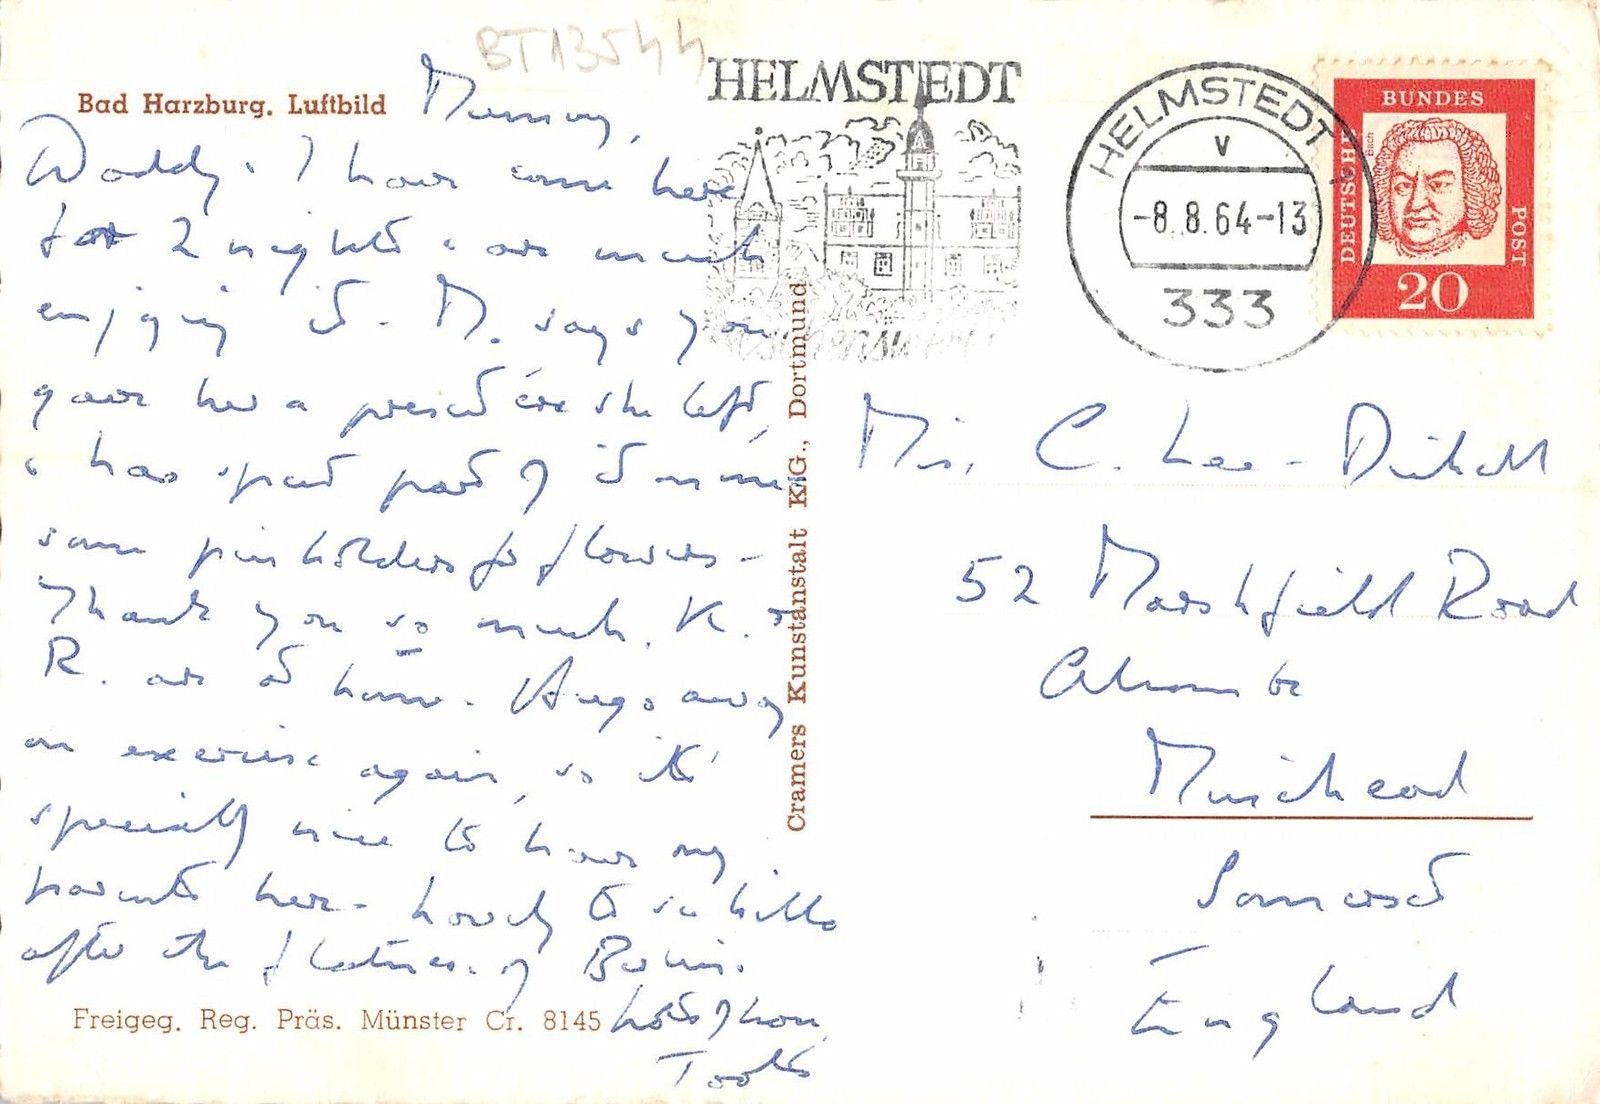 BT13544
Bad Harzburg. Luftbild
Mummy,
Daddy & I have come here
for 2 nights & are much
enjoying it. M. says you
gave her a present ere she left,
& has spent part of it on
some pinholders for flowers -
Thank you so much. K. &
R. are at home. Hugo away
on exercise again, so it's
specially nice to have my
parents here - lovely to see hills
after the flatness of Berlin.
Lots of love
Toots
Freigeg. Reg. Präs. Münster Cr. 8145
Cramers Kunstanstalt KG., Dortmund
HELMSTEDT
HELMSTEDT
v
-8.8.64-13
333
DEUTSCHE
BUNDES
POST
Bach
20
C. Lee-
52 Marshfield Road
Alcombe
Minehead
Somerset
England